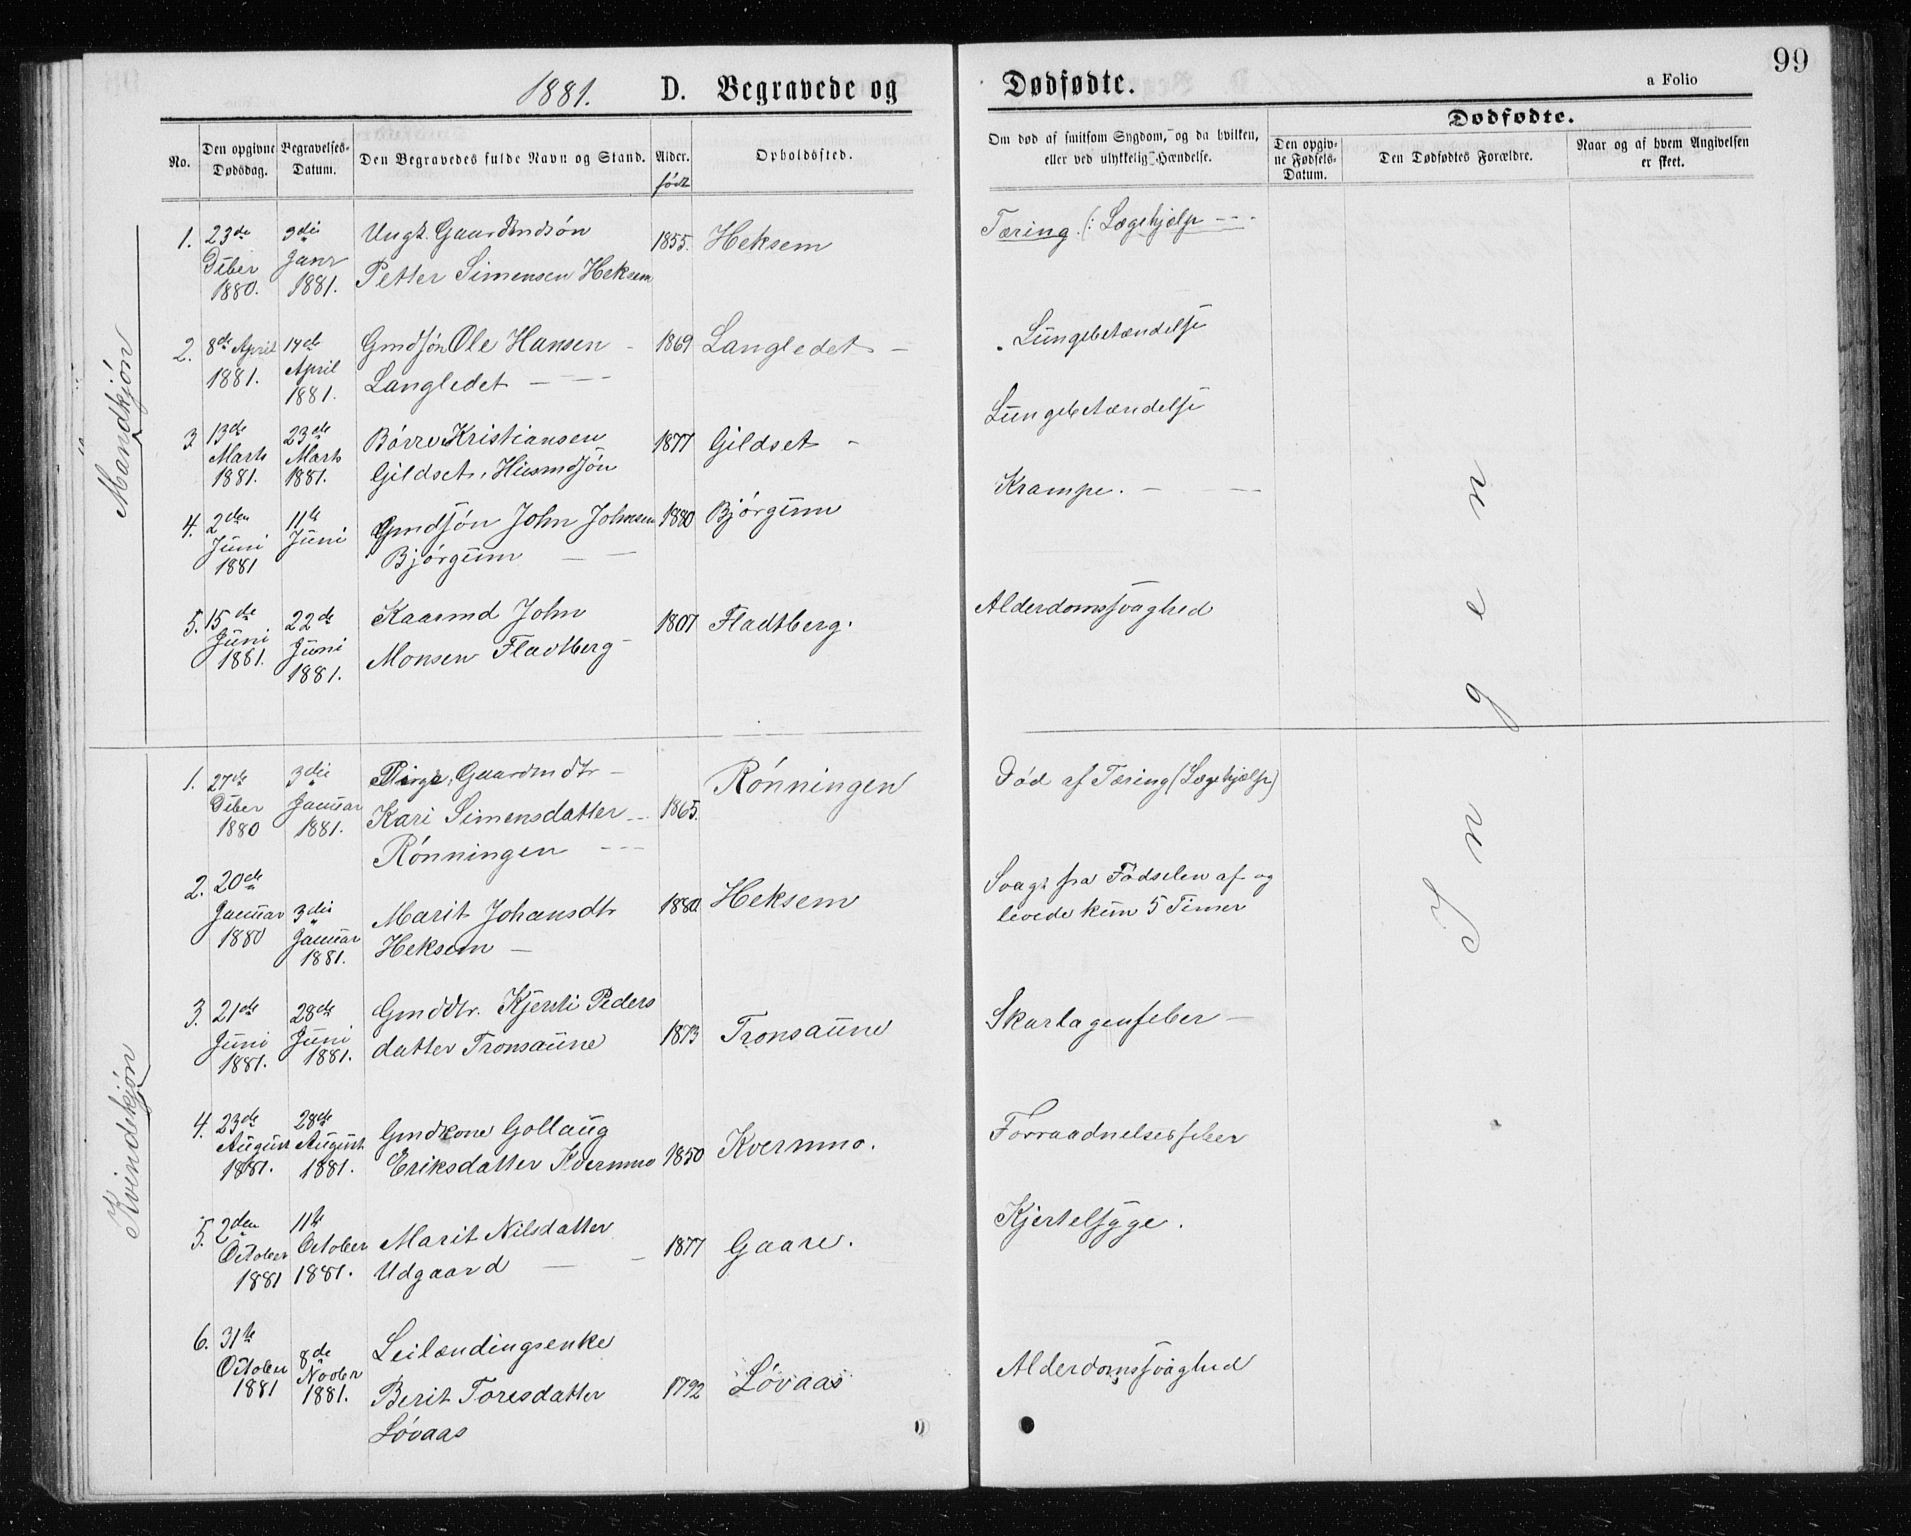 1881. D. Begravede og
Dødfødte.
a Folio
99
No.
Den opgivne Dødsdag.
Begravelses-Datum.
Den Begravedes fulde Navn og Stand.
Alder.
født
Opholdssted.
Om død af smitsom Sygdom, og da hvilken,
eller ved ulykkelig Hændelse.
Dødfødte.
Den opgiv-
ne Fødsels-
Datum.
Den Dødfødtes Forældre.
Naar og af hvem Angivelsen
er skeet.
Mandkjøn
1. 23de Dcber 1880. 3die Janr 1881. Ungk. Gaardmdsøn
Petter Simensen Heksem 1855. Heksem
Tæring. (: Lægehjelp - - -
2. 8de April 1881. 14de April 1881. Gmdsøn Ole Hansen -
Langledet - - 1869 Langledet -
Lungebetændelse
3. 13de Marts 1881. 23de Marts 1881. Børre Kristiansen
Gildset, Husmdsøn 1877 Gildset -
Lungebetændelse
4. 2den Juni 1881 11te Juni Gmdsøn John Johnsen
Bjørgum - - 1880 Bjørgum
Krampe. - -
5. 15de Juni 1881. 22de Juni 1881. Kaarmd John
Monsen Fladtberg - 1807 Fladtberg.
Alderdomssvaghed
Kvindekjøn
1. 27de Dcber 1880 3die Januar 1881. Gaardmdtr -
Kari Simensdatter -
Rønningen - - - 1865. Rønningen
Død af Tæring (Lægehjælp)
2. 20de Januar 1880 3die Januar 1881. Marit Johansdtr
Heksem - 1880 Heksem
Svag fra Fødselen af og
levede kun 5 Timer
3. 21de Juni 1881. 28de Juni 1881. Gmddtr. Kjersti Peders
datter Tronsaune 1873 Tronsaune
Skarlagenfeber -
4. 23de August 1881. 28de August 1881. Gmdkone Gollaug
Eriksdatter Kvernmo 1850 Kvernmo.
Forraadnelsesfeber
5. 2den October 1881 11te October 1881. Marit Nilsdatter
Udgaard - - 1877 Gaare.
Kjertelsyge.
6. 31te October 1881 8de Novbr 1881. Leilændingsenke
Berit Toresdatter
Løvaas 1792 Løvaas
Alderdomssvaghed
Ingen